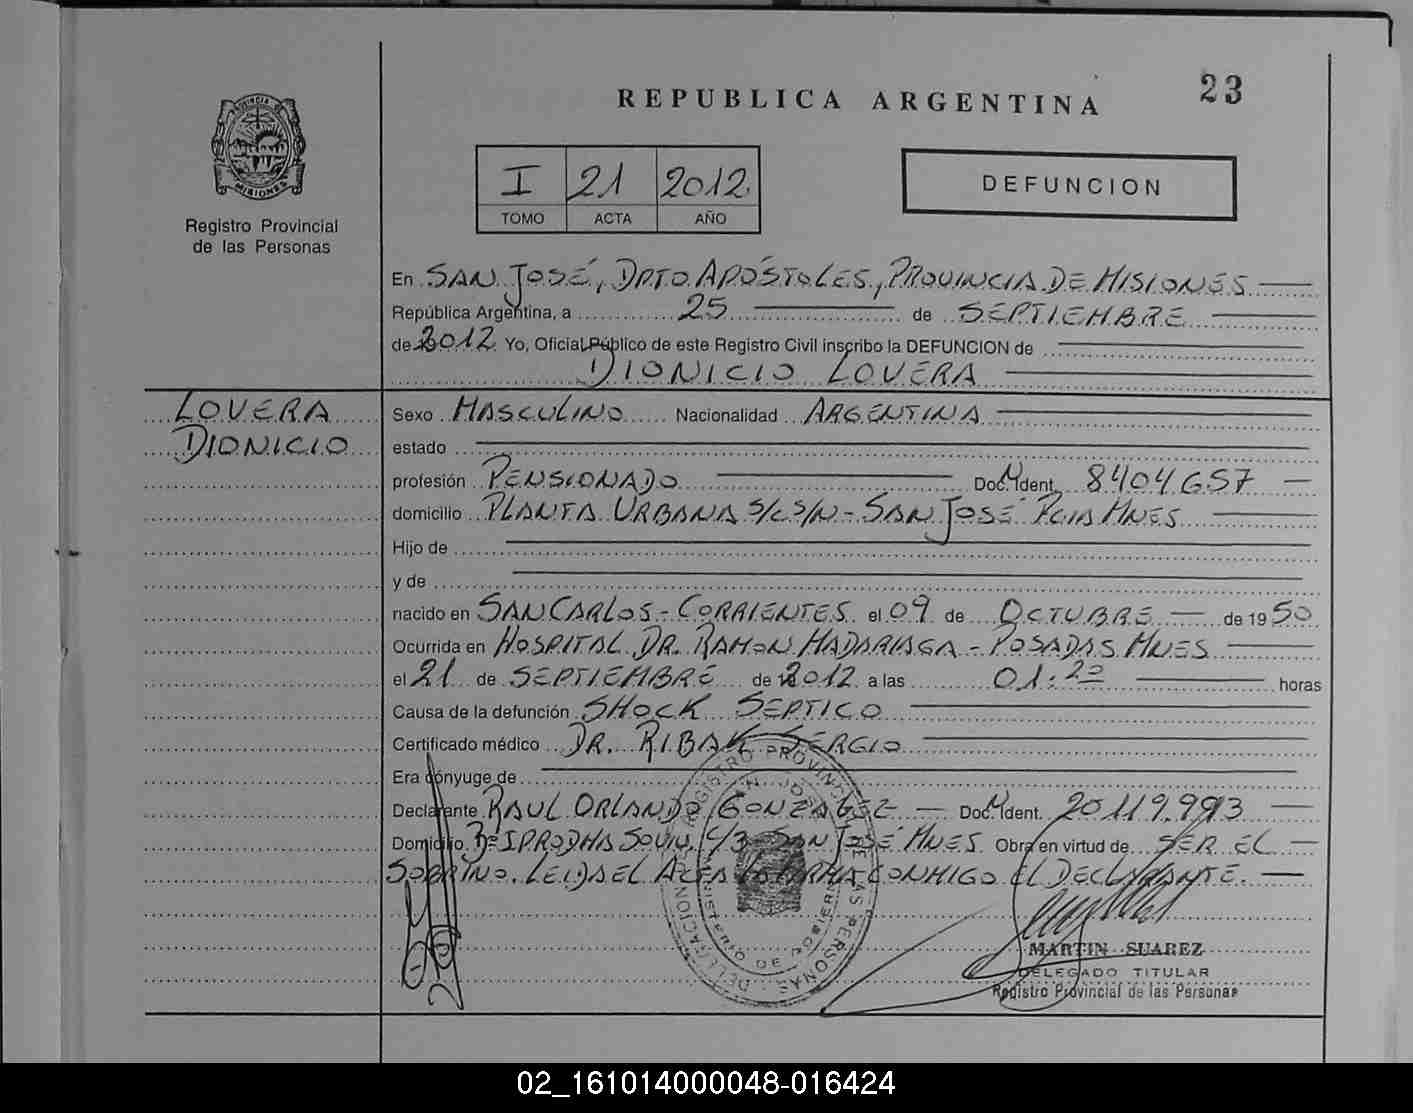 23
REPUBLICA ARGENTINA
PROVINCIA DE
MISIONES
Registro Provincial
de las Personas
I 21 2012
TOMO ACTA AÑO
DEFUNCION
En SAN JOSÉ, DPTO APÓSTOLES, PROVINCIA DE MISIONES
República Argentina, a 25 de SEPTIEMBRE
de 2012 Yo, Oficial Público de este Registro Civil inscribo la DEFUNCION de
DIONICIO LOVERA
LOVERA
DIONICIO
Sexo MASCULINO Nacionalidad ARGENTINA
estado
profesión PENSIONADO Doc. Ident. 8404657
domicilio PLANTA URBANA S/C S/N - SAN JOSÉ PCIA MNES
Hijo de
y de
nacido en SAN CARLOS - CORRIENTES el 09 de OCTUBRE de 1950
Ocurrida en HOSPITAL DR. RAMON MADARIAGA - POSADAS MNES
el 21 de SEPTIEMBRE de 2012 a las 01:20 horas
Causa de la defunción SHOCK SEPTICO
Certificado médico DR. RIBAK SERGIO
Era cónyuge de
Declarante RAUL ORLANDO GONZALEZ Doc. Ident. 20.119.993
Domicilio Bº IPRODHA 50 VIV. 4/3 SAN JOSÉ MNES Obra en virtud de SER EL
SOBRINO. LEIDA EL ACTA LA FIRMA CONMIGO EL DECLARANTE.
DELEGACION REGISTRO PROVINCIAL DE LAS PERSONAS
SAN JOSE
MINISTERIO DE GOBIERNO
MARTIN SUAREZ
DELEGADO TITULAR
Registro Provincial de las Personas
02_161014000048-016424